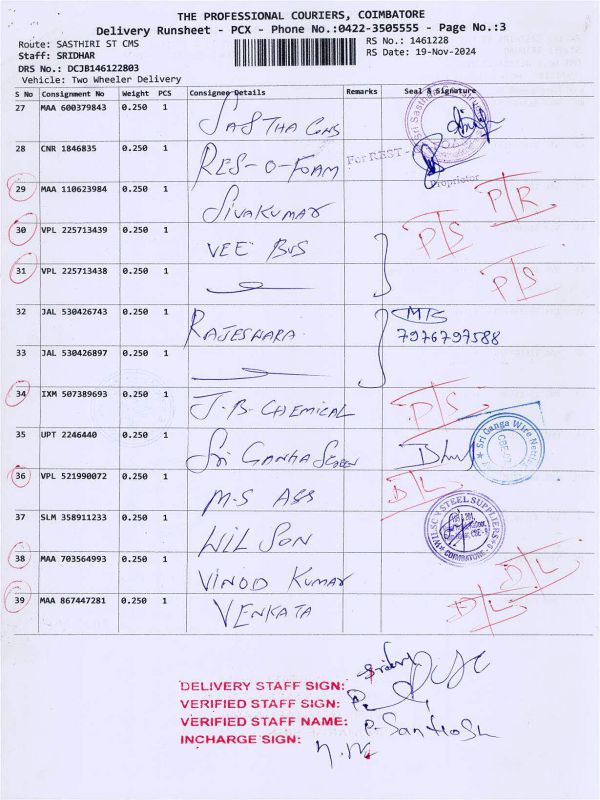 THE PROFESSIONAL COURIERS, COIMBATORE
Delivery Runsheet - PCX - Phone No.:0422-3505555 - Page No.:3
Route: SASTHIRI ST CMS
RS No.: 1461228
Staff: SRIDHAR
RS Date: 19-Nov-2024
DRS No.: DCJB146122803
Vehicle: Two Wheeler Delivery
S No Consignment No Weight PCS Consignee Details Remarks Seal & Signature
27 MAA 600379843 0.250 1 SASTHA
28 CNR 1846835 0.250 1 RES-O-FOAM For REST-
Proprietor
29 MAA 110623984 0.250 1 SIVAKUMAR P/R
30 VPL 225713439 0.250 1 VEE BUS P/S
31 VPL 225713438 0.250 1 P/S
32 JAL 530426743 0.250 1 RAJESHARA
7976797588
33 JAL 530426897 0.250 1
34 IXM 507389693 0.250 1 J.B-CHEMICAL P/S
35 UPT 2246440 0.250 1 SRI GANHA SCREEN Sri Ganga Wire Netting
36 VPL 521990072 0.250 1 M.S ASS D/L
37 SLM 358911233 0.250 1 WILSON WILSON STEEL SUPPLIERS
COIMBATORE
38 MAA 703564993 0.250 1 VINOD KUMAR D/L
39 MAA 867447281 0.250 1 VENKATA D/L
DELIVERY STAFF SIGN:
VERIFIED STAFF SIGN:
VERIFIED STAFF NAME: P. Santhosh
INCHARGE SIGN: